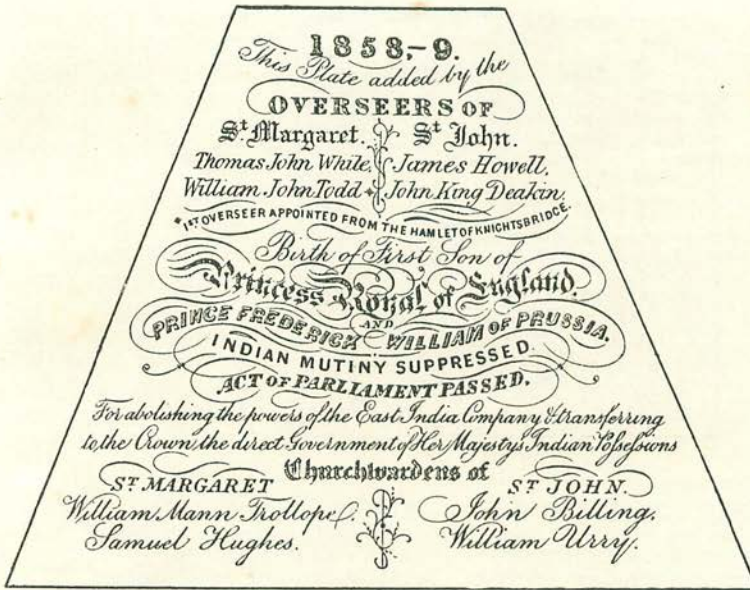 1858,-9.
This Plate added by the
OVERSEERS OF
St Margaret. St John.
Thomas John White, James Howell,
William John Todd * John King Deakin,
* 1ST OVERSEER APPOINTED FROM THE HAMLET OF KNIGHTSBRIDGE.
Birth of First Son of
Princess Royal of England,
AND
PRINCE FREDERICK WILLIAM OF PRUSSIA.
INDIAN MUTINY SUPPRESSED.
ACT OF PARLIAMENT PASSED,
For abolishing the powers of the East India Company & transferring
to the Crown, the direct Government of Her Majestys Indian Possessions
Churchwardens of
ST MARGARET ST JOHN.
William Mann Trollope, John Billing,
Samuel Hughes. William Urry.